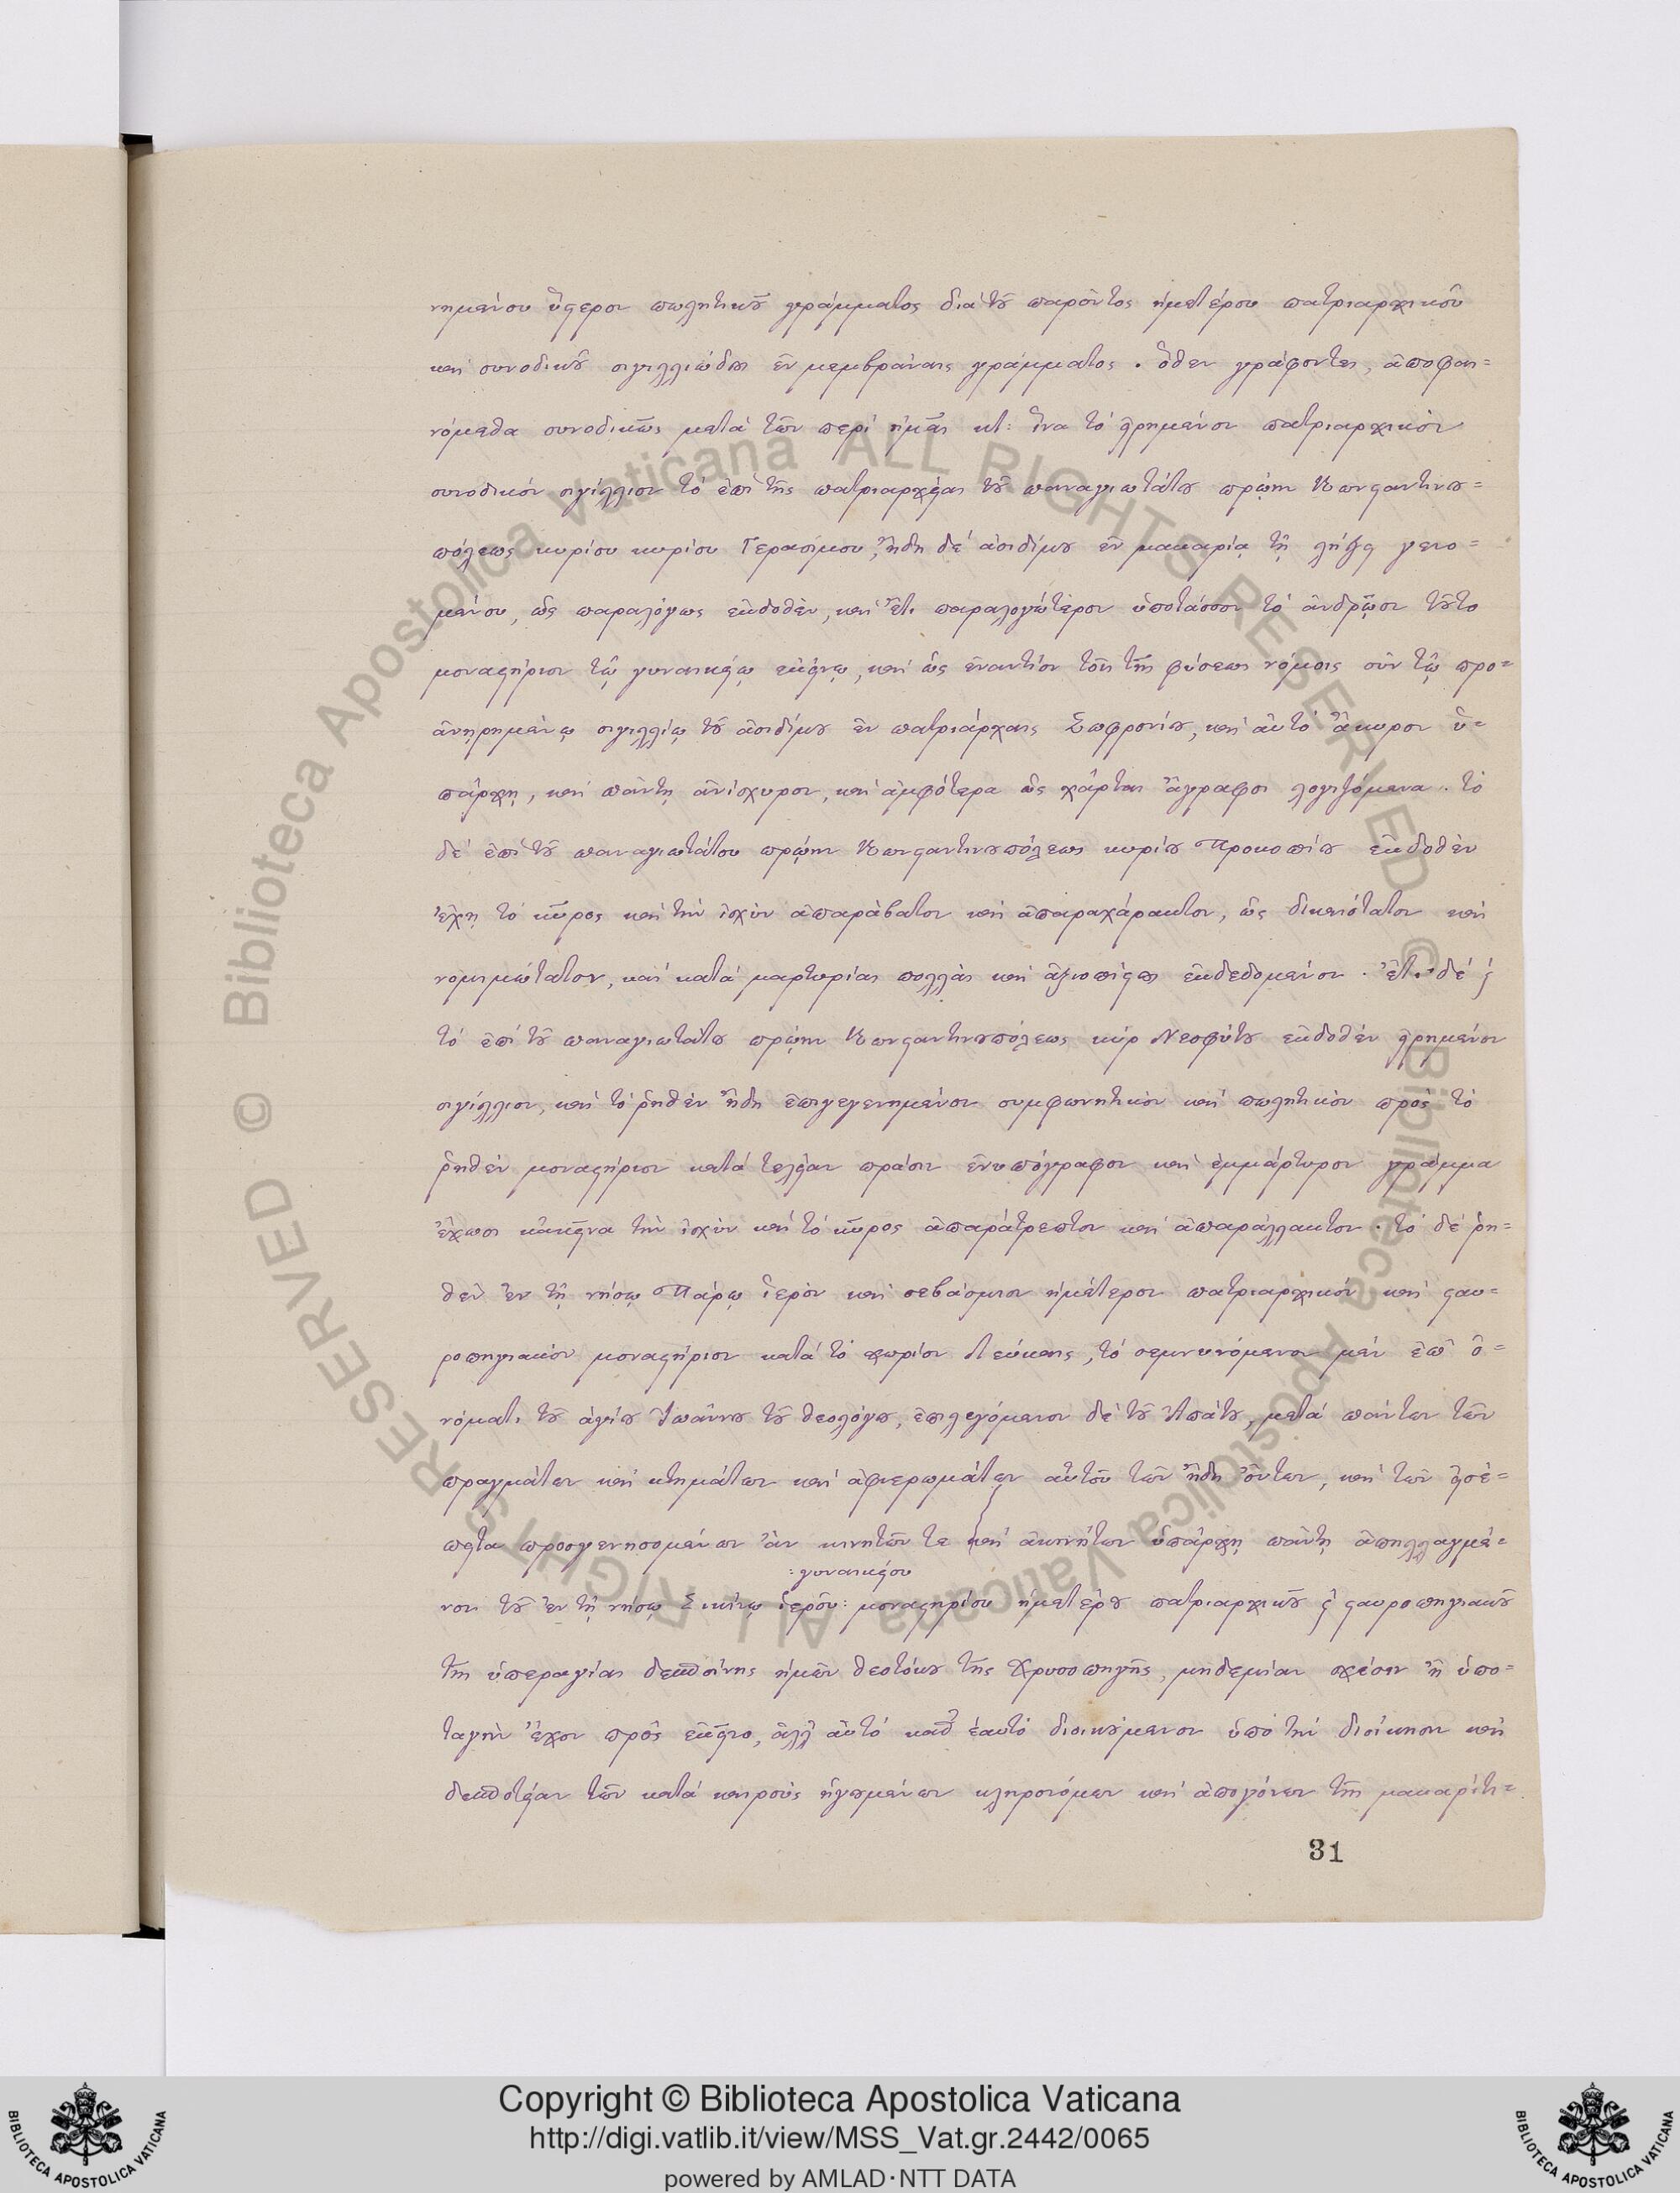 νημένου ὕστερον πωλητικοῦ γράμματος διὰ τοῦ παρόντος ἡμετέρου πατριαρχικοῦ
καὶ συνοδικοῦ σιγιλλιώδους ἐν μεμβράναις γράμματος. ὅθεν γράφοντες, ἀποφαι=
νόμεθα συνοδικῶς μετὰ τῶν περὶ ἡμᾶς κτ: ἵνα τὸ εἰρημένον πατριαρχικὸν
συνοδικόν σιγίλλιον τὸ ἐπὶ τῆς πατριαρχείας τοῦ παναγιωτάτου πρώην Κωνσταντινου=
πόλεως κυρίου κυρίου Γερασίμου, ἤδη δὲ ἀοιδίμου ἐν μακαρίᾳ τῇ λήξει γενο=
μένου, ὡς παραλόγως ἐκδοθὲν, καὶ ἔτι παραλογώτερον ὑποτάσσον τὸ ἀνδρῷον τοῦτο
μοναστήριον τῷ γυναικείῳ ἐκείνῳ, καὶ ὡς ἐναντίον τοῖς τῆς φύσεως νόμοις σὺν τῷ προ=
ἀνῃρημένῳ σιγιλλίῳ τοῦ ἀοιδίμου ἐν πατριάρχαις Σωφρονίου, καὶ αὐτὸ ἄκυρον ὑ=
πάρχῃ, καὶ πάντη ἀνίσχυρον, καὶ ἀμφότερα ὡς χάρται ἄγραφοι λογιζόμενα. τὸ
δὲ ἐπὶ τοῦ παναγιωτάτου πρώην Κωνσταντινουπόλεως κυρίου Προκοπίου ἐκδοθὲν
ἔχῃ τὸ κῦρος καὶ τὴν ἰσχὺν ἀπαράβατον καὶ ἀπαραχάρακτον, ὡς δικαιότατον καὶ
νομιμώτατον, καὶ κατὰ μαρτυρίας πολλὰς καὶ ἀξιοπίστους ἐκδεδομένον. ἔτι δὲ ϗ
τὸ ἐπὶ τοῦ παναγιωτάτου πρώην Κωνσταντινουπόλεως κὺρ Νεοφύτου ἐκδοθὲν εἰρημένον
σιγίλλιον, καὶ τὸ ῥηθὲν ἤδη ἐπιγεγενημένον συμφωνητικὸν καὶ πωλητικὸν πρὸς τὸ
ῥηθὲν μοναστήριον κατὰ τελείαν πρᾶσιν ἐνυπόγραφον καὶ ἐμμάρτυρον γράμμα
ἔχωσι κἀκεῖνα τὴν ἰσχὺν καὶ τὸ κῦρος ἀπαράτρεπτον καὶ ἀπαράλλακτον. τὸ δὲ ῥη=
θὲν ἐν τῇ νήσῳ Πάρῳ ἱερὸν καὶ σεβάσμιον ἡμέτερον πατριαρχικόν καὶ σταυ=
ροπηγιακὸν μοναστήριον κατὰ τὸ χωρίον Λεύκαις, τὸ σεμνυνόμενον μὲν ἐπ' ὀ=
νόματι τοῦ ἁγίου Ἰωάννου τοῦ θεολόγου, ἐπιλεγόμενον δὲ τοῦ Ἀπάτου, μετὰ πάντων τῶν
πραγμάτων καὶ κτημάτων καὶ ἀφιερωμάτων αὐτοῦ τῶν ἤδη ὄντων, καὶ τῶν εἰσέ=
πειτα προσγενησομένων ἂν κινητῶν τε καὶ ἀκινήτων ὑπάρχῃ πάντη ἀπηλλαγμέ=
:γυναικείου
νον τοῦ ἐν τῇ νήσῳ Σικίνῳ ἱεροῦ: μοναστηρίου ἡμετέρου πατριαρχικοῦ ϗ σταυροπηγιακοῦ
τῆς ὑπεραγίας δεσποίνης ἡμῶν θεοτόκου τῆς Χρυσοπηγῆς, μηδεμίαν σχέσιν ἢ ὑπο=
ταγὴν ἔχον πρὸς ἐκεῖνο, ἀλλ' αὐτὸ καθ' ἑαυτὸ διοικούμενον ὑπὸ τὴν διοίκησιν καὶ
δεσποτείαν τῶν κατὰ καιροὺς ἡγουμένων κληρονόμων καὶ ἀπογόνων τῆς μακαρίτι=
31
Copyright © Biblioteca Apostolica Vaticana
http://digi.vatlib.it/view/MSS_Vat.gr.2442/0065
powered by AMLAD·NTT DATA